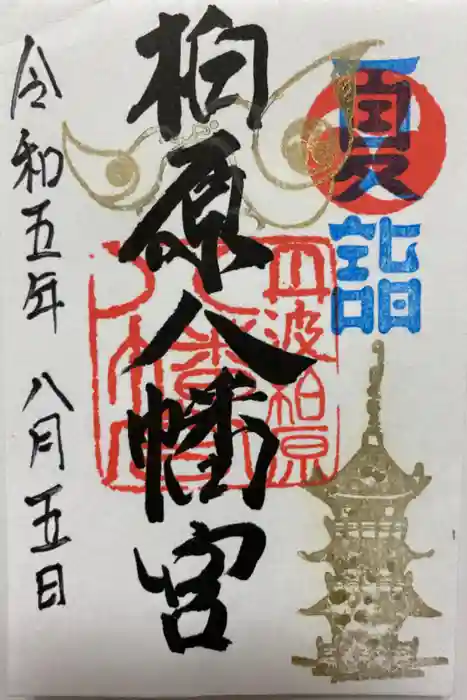 夏詣
丹波柏原
八幡宮
柏原八幡宮
令和五年 八月五日